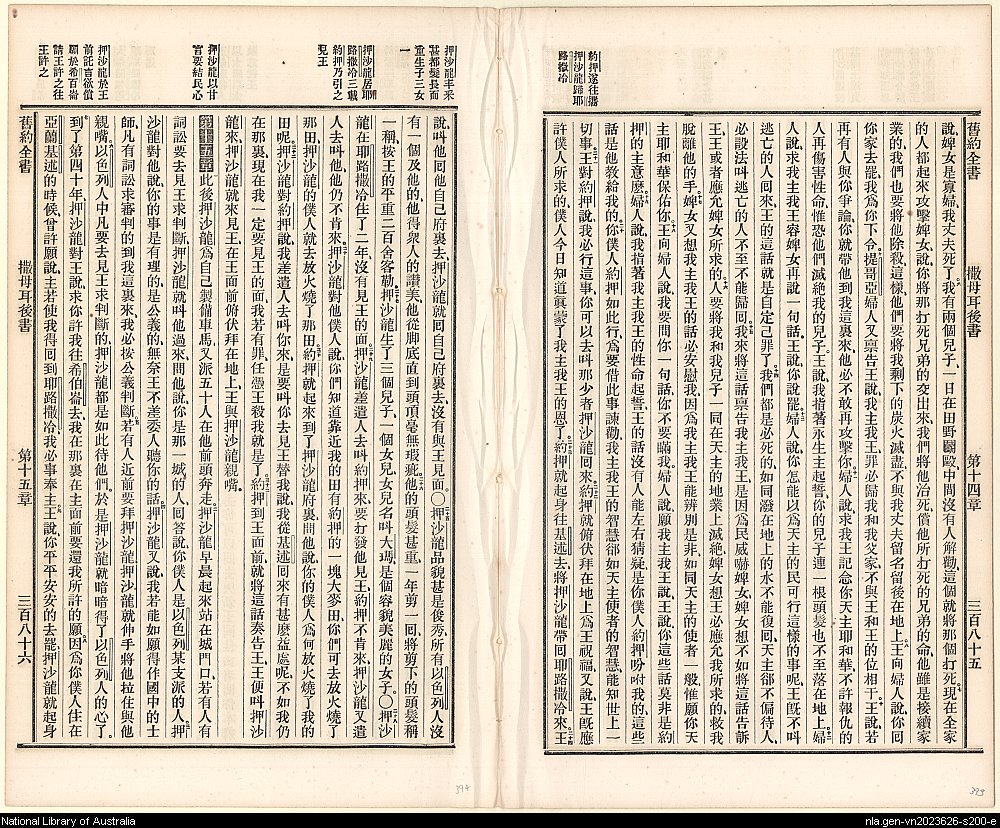 約押遂往攜
押沙龍歸耶
路撒冷
舊約全書 撒母耳後書 第十四章 三百八十五
說、婢女是寡婦、我丈夫死了、我有兩個兒子、一日在田野鬬毆、中間沒有人解勸、這個就將那個打死、現在全家
的人都起來攻擊婢女說、你將那打死兄弟的交出來、我們將他治死、償他所打死的兄弟的命、他雖是接續家
業的、我們也要將他除殺、這樣他們要將我剩下的炭火滅盡、不與我丈夫留名留後在地上、王向婦人說、你回
你家去罷、我爲你下令、提哥亞婦人又禀告王說、我主我王、罪必歸我和我父家、不與王和王的位相干、王說、若
再有人與你爭論、你就帶他到我這裏來、他必不敢再攻擊你、婦人說、求我王記念你天主耶和華、不許報仇的
人再傷害性命、惟恐他們滅絕我的兒子、王說、我指著永生主起誓、你的兒子連一根頭髮也不至落在地上、婦
人說、求我主我王容婢女再說一句話、王說、你說罷、婦人說、你怎能以爲天主的民可行這樣的事呢、王旣不叫
逃亡的人回來、王的這話就是自定己罪了、我們都是必死的、如同潑在地上的水不能復回、天主郤不偏待人、
必設法叫逃亡的人不至不能歸回、我來將這話禀告我主我王、是因爲民威嚇婢女、婢女想不如將這話告訴
王、王或者應允婢女所求的、人要將我和我兒子一同在天主的地業上滅絕、婢女想王必應允我所求的、救我
脫離他的手、婢女又想我主我王的話必安慰我、因爲我主我王能辨別是非、如同天主的使者一般、惟願你天
主耶和華保佑你、王向婦人說、我要問你一句話、你不要瞞我、婦人說、願我主我王說、王說、你這些話莫非是約
押的主意麽、婦人說、我指著我主我王的性命起誓、王的話沒有人能左右猜疑、是你僕人約押吩咐我的、這些
話是他敎給我的、你僕人約押如此行、爲要借此事諫勸我主、我主我王的智慧郤如天主使者的智慧、能知世上一
切事、王對約押說、我必行這事、你可以去叫那少者押沙龍回來、約押就俯伏拜在地上、爲王祝福、又說、王旣應
許僕人所求的、僕人今日知道眞蒙了我主我王的恩了、約押就起身往基述去、將押沙龍帶回耶路撒冷來、王
押沙龍丰采
甚都髮長而
重生子三女
一
押沙龍居耶
路撒冷三載
約押乃引之
見王
押沙龍以甘
言要結民心
押沙龍於王
前託言欲償
願於希百崙
請王許之往
王許之
說、叫他回他自己府裏去、押沙龍就回自己府裏去、沒有與王見面、〇押沙龍品貌甚是俊秀、所有以色列人沒
有一個及他的、他得衆人的讚美、他從脚底直到頭頂毫無瑕疵、他的頭髮甚重、一年剪一回、將剪下的頭髮稱
一稱、按王的平重二百舍客勒、押沙龍生了三個兒子、一個女兒、女兒名叫大瑪、是個容貌美麗的女子、〇押沙
龍在耶路撒冷住了二年、沒有見王的面、押沙龍差遣人去叫約押來、要打發他見王、約押不肯來、押沙龍又遣
人去叫他、他仍不肯來、押沙龍對他僕人說、你們知道靠近我的田有約押的一塊大麥田、你們可去放火燒了
那田、押沙龍的僕人就去放火燒了那田、約押就起來到了押沙龍府裏、問他說、你的僕人爲何放火燒了我的
田呢、押沙龍對約押說、我差遣人去叫你來、是要叫你去見王替我說、我從基述回來有甚麽益處呢、不如我仍
在那裏、現在我一定要見王的面、我若有罪、任憑王殺我就是了、約押到王面前就將這話奏告王、王便叫押沙
龍來、押沙龍就來見王、在王面前俯伏拜在地上、王與押沙龍親嘴、
第十五章 此後押沙龍爲自己製備車馬、又派五十人在他前頭奔走、押沙龍早晨起來站在城門口、若有人有
詞訟要去見王求判斷、押沙龍就叫他過來、問他說、你是那一城的人、回答說、你僕人是以色列某支派的人、押
沙龍對他說、你的事是有理的、是公義的、無奈王不差委人聽你的話、押沙龍又說、我若能如願得作國中的士
師、凡有詞訟求審判的到我這裏來、我必按公義判斷、若有人近前要拜押沙龍、押沙龍就伸手將他拉住與他
親嘴、以色列人中凡要去見王求判斷的、押沙龍都是如此待他們、於是押沙龍就暗暗得了以色列人的心了、
到了第四十年、押沙龍對王說、求你許我往希伯崙去、我在那裏在主面前要還我所許的願、因爲你僕人住在
亞蘭基述的時候、曾許願說、主若使我得回到耶路撒冷、我必事奉主、王說、你平平安安的去罷、押沙龍就起身
舊約全書 撒母耳後書 第十五章 三百八十六
394
393
National Library of Australia
nla.gen-vn2023626-s200-e